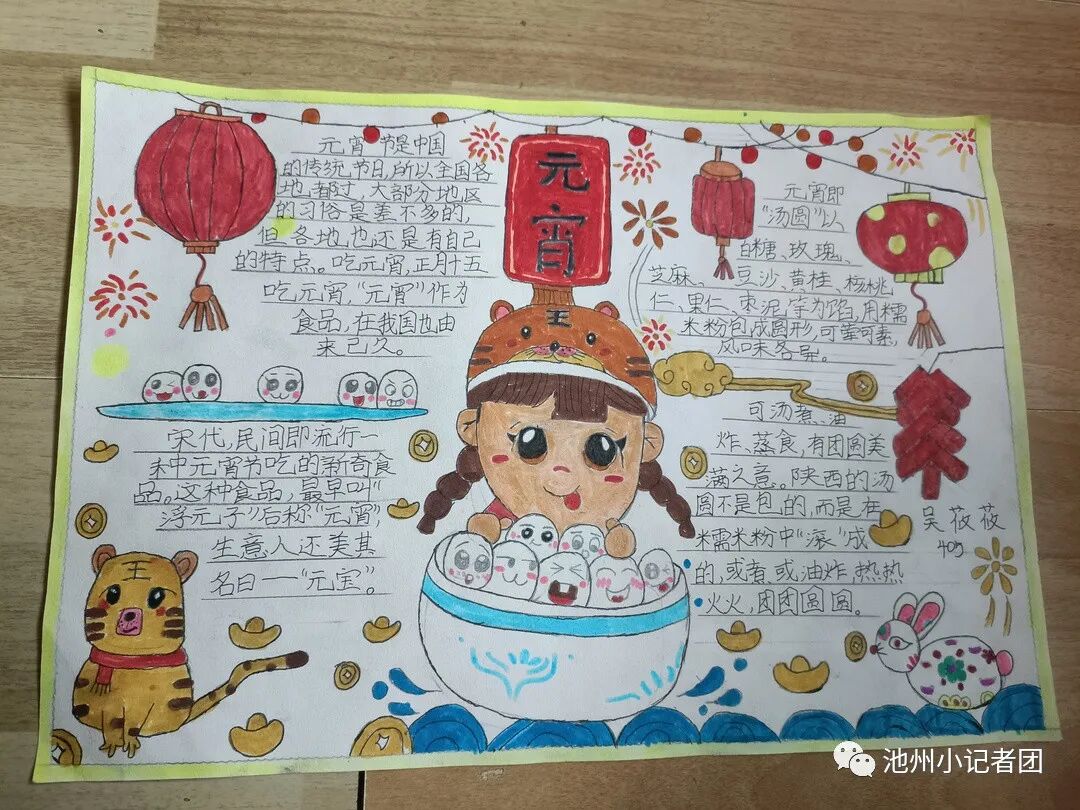 元宵节是中国
的传统节日,所以全国各
地都过,大部分地区
的习俗是差不多的,
但各地也还是有自己
的特点。吃元宵,正月十五
吃元宵,“元宵”作为
食品,在我国也由
来已久。
宋代,民间即流行一
种元宵节吃的新奇食
品。这种食品,最早叫“
浮元子”后称“元宵”,
生意人还美其
名曰一“元宝”。
元
宵
王
王
元宵即
“汤圆”以
白糖、玫瑰、
芝麻、豆沙、黄桂、核桃
仁、果仁、枣泥等为馅,用糯
米粉包成圆形,可荤可素,
风味各异。
可汤煮、油
炸、蒸食,有团圆美
满之意。陕西的汤
圆不是包的,而是在
糯米粉中“滚”成
的,或者或油炸,热热
火火,团团圆圆。
吴筱筱
405
池州小记者团